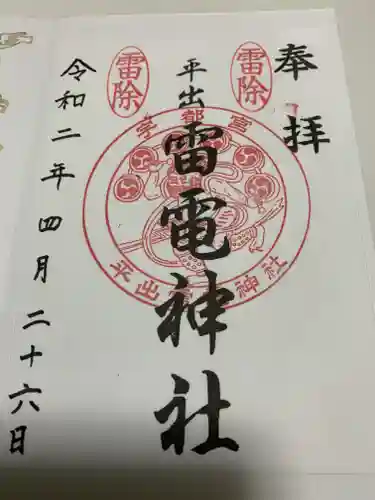 奉拝
雷除
平出
雷電神社
雷除
令和二年四月二十六日
宇都宮
平出
神社